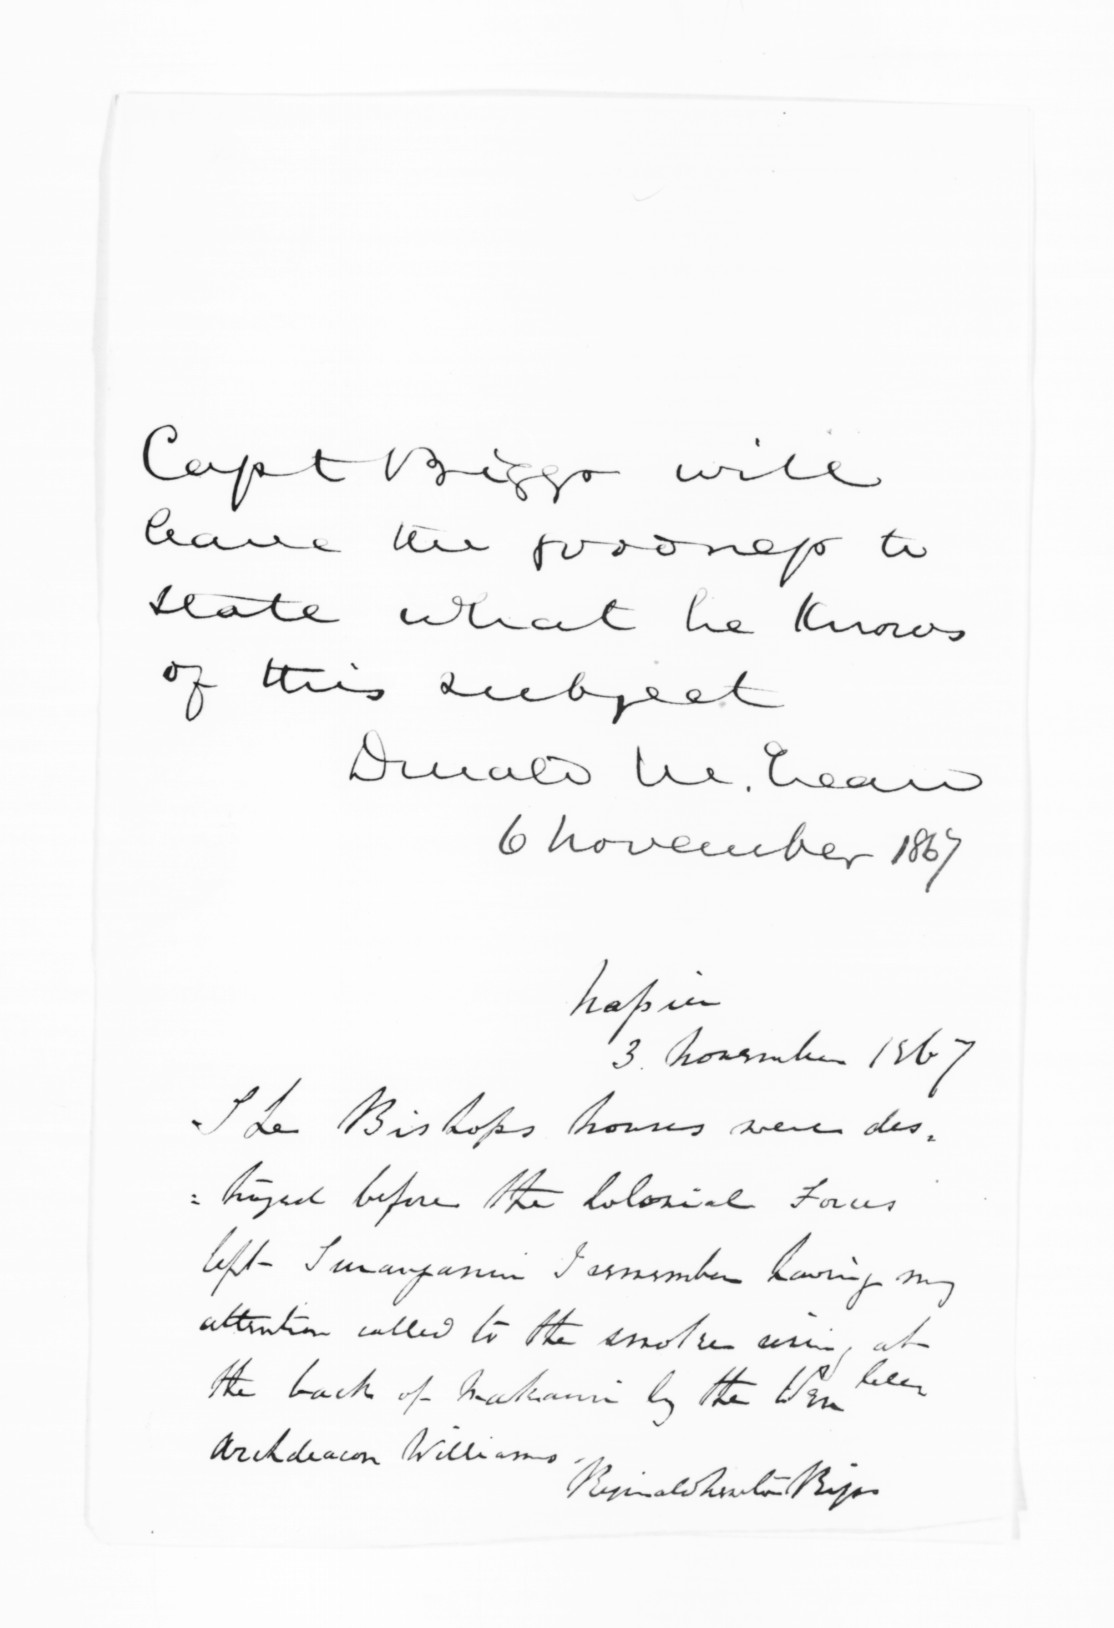 Capt Biggs will
have the goodness to
state what he knows
of this subject
Donald McLean
6 November 1867
Napier
3. November 1867
The Bishops houses were des=
=troyed before the Colonial Forces
left I remember having my
attention called to the smoke rising at
the back of by the Ven
Archdeacon Williams.
Reginald Newton Biggs